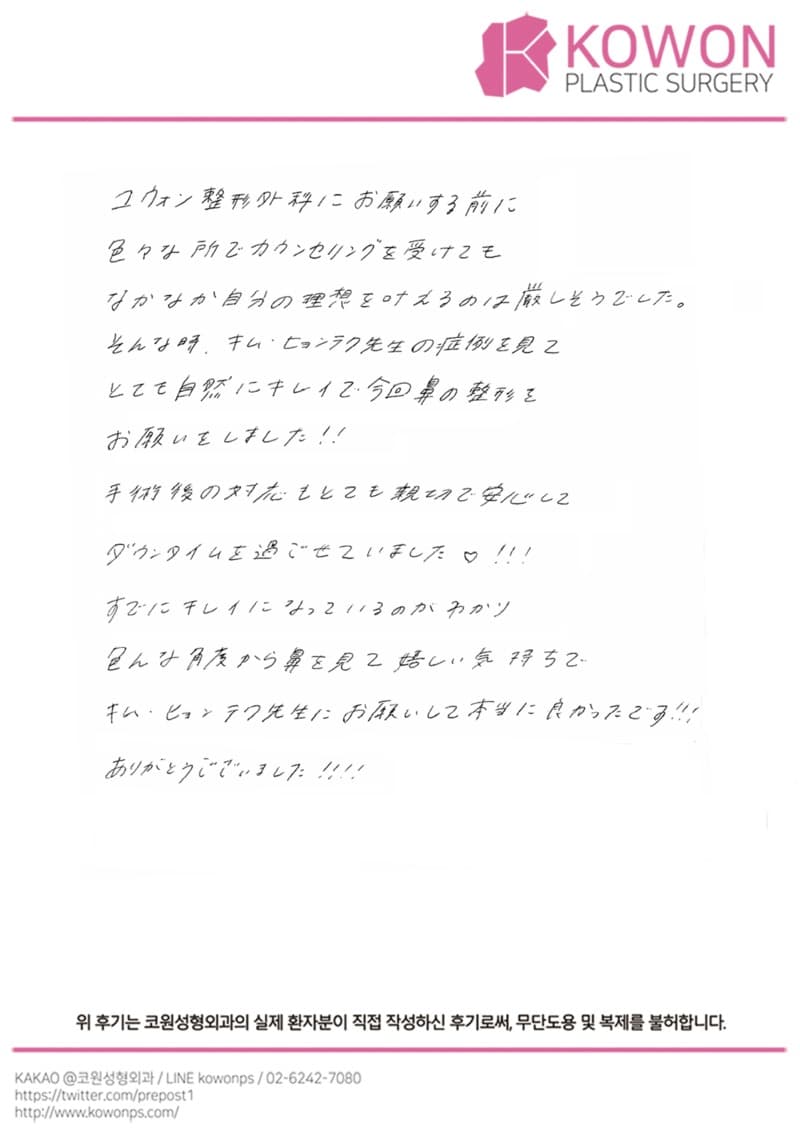 KOWON
PLASTIC SURGERY
コウォン整形外科にお願いする前に
色々な所でカウンセリングを受けても
なかなか自分の理想を叶えるのは厳しそうでした。
そんな時、キム・ヒョンテク先生の症例を見て
とても自然にキレイで今回鼻の整形を
お願いをしました!!
手術後の対応もとても親切で安心して
ダウンタイムを過ごせていました♡!!!
すでにキレイになっているのがわかり
色んな角度から鼻を見て嬉しい気持ちで
キム・ヒョンテク先生にお願いして本当に良かったです!!!
ありがとうございました!!!!
위 후기는 코원성형외과의 실제 환자분이 직접 작성하신 후기로써, 무단도용 및 복제를 불허합니다.
KAKAO @코원성형외과 / LINE kowonps / 02-6242-7080
https://twitter.com/prepost1
http://www.kowonps.com/